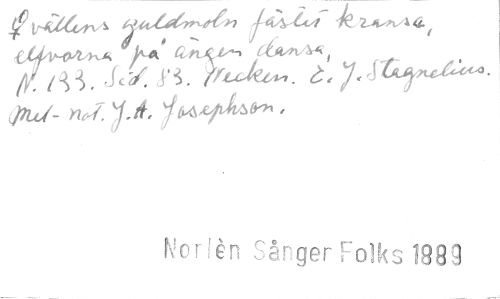 Qvällens guldmoln fästet kransa,
elfvorna på ängen dansa,
N. 133. Sid. 83. Necken. E. J. Stagnelius.
Mel-not. J. A. Josephson.
Norlèn Sånger Folks 1889